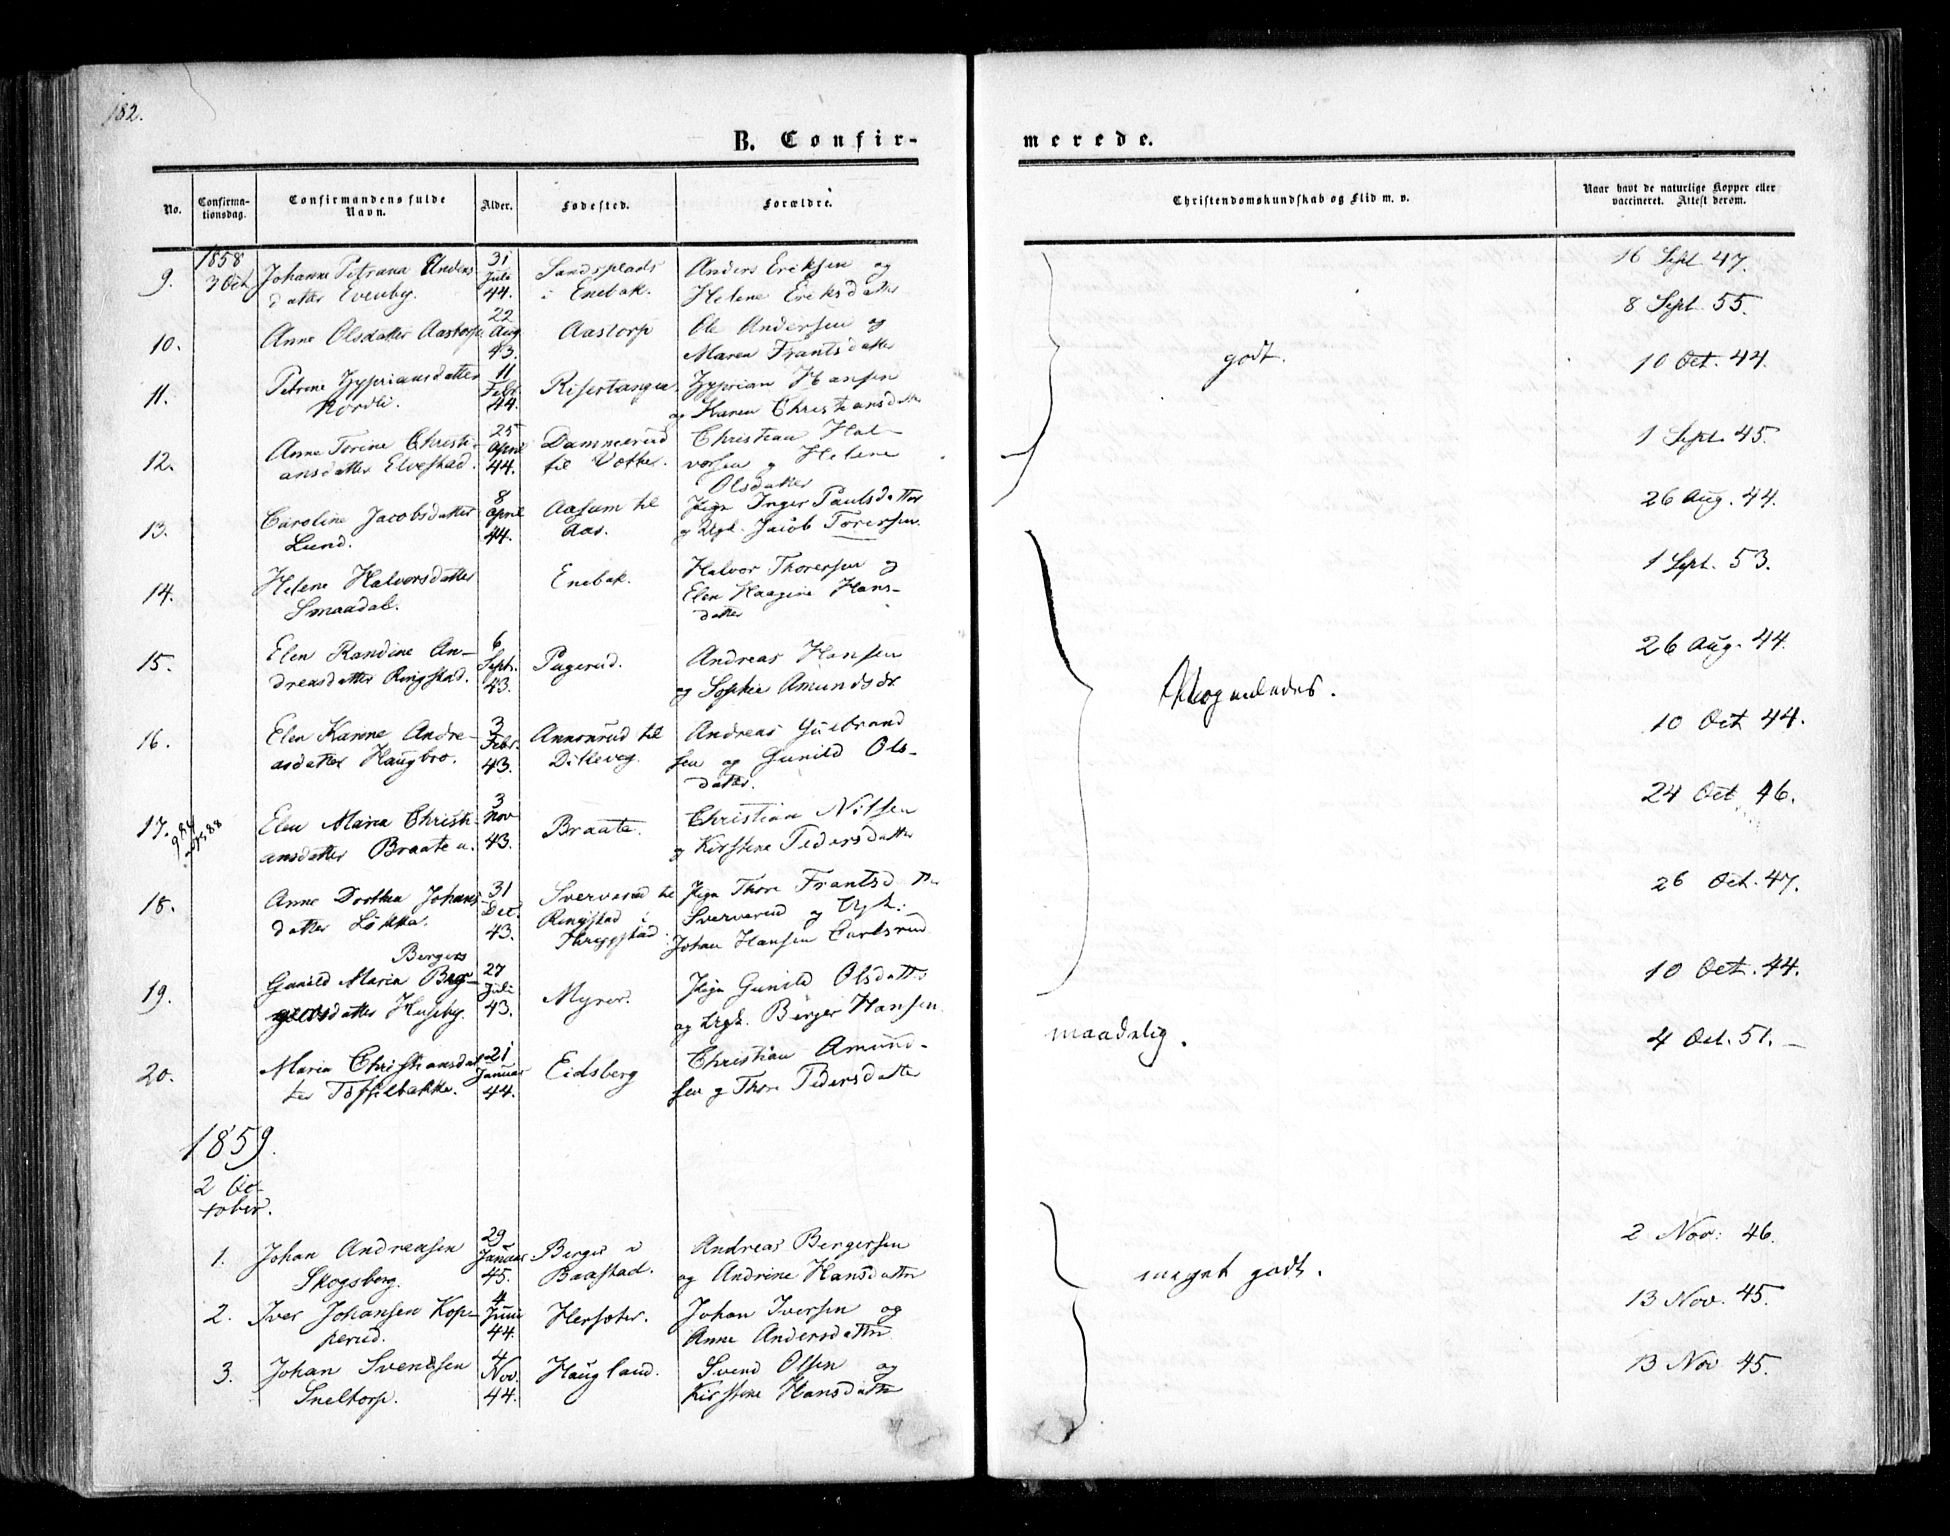 182.
B. Confir-
merede.
No.
Confirma-
tionsdag.
Confirmandens fulde
Navn.
Alder.
Fødested.
Forældre.
Christendomskundskab og Flid m. v.
Naar havt de naturlige Kopper eller
vaccineret. Attest derom.
1858
9. 3 Oct. Johanne Petrana Anders- 31 Sandsplads Anders Eriksen og 16 Sept. 47.
datter Evenby. Juli 44. i Enebak. Helene Eriksdatter
10. Anne Olsdatter Aastorp. 22 Aug 43. Aastorp Ole Andersen og 8 Sept. 55.
Maren Frantsdatter
godt.
11. Petrine Zypriansdatter 11 Febr. 44. Risertangen. Zyprian Hansen 10 Oct. 44.
Nordli. og Karen Christiansdatter
12. Anne Torine Christi- 25 April 44. Dammerud Christian Hal- 1 Sept. 45.
ansdatter Elvestad. til Votter. vorsen og Helene
Olsdatter
13. Caroline Jacobsdatter 8 April 44. Aasum til Pige Inger Paulsdatter 26 Aug. 44.
Lund. Aas. og Ugk. Jacob Torersen.
14. Helene Halvorsdatter Enebak. Halvor Thorersen og 1 Sept. 53.
Smaadal. Elen Kaagine Hans-
datter
15. Elen Randine An- 6 Sept. 43. Pagerud. Andreas Hansen 26 Aug. 44.
dreasdatter Ringstad. og Sophie Amundsdr.
Nogenledes.
16. Elen Karine Andre- 3 Febr. 43. Annonrud til Andreas Gulbrand 10 Oct. 44.
asdatter Haugbro. Dilleveg. sen og Gunild Ols-
datter.
17. Elen Maria Christi- 3 Nov 43. Braate. Christian Nilsen 24 Oct. 46.
ansdatter Braate u. og Kirstine Pedersdatter
18. Anne Dorthea Johans- 31 Dec. 43. Sververud til Pige Thore Frantsdtr 26 Oct. 47.
datter Løkka. Ringstad i Sververud og Ugk:
Thrygstad. Johan Hansen Carlsrud
Bergers
19. Gunild Maria Ber- 27 Juli 43. Myrer. Pige Gunild Olsdatter 10 Oct. 44.
gersdatter Huseby. og Ugk. Berger Hansen.
20. Maria Christiansdat- 21 Januar 44. Eidsberg Christian Amund- maadelig. 4 Oct. 51.
ter Toffelbakke. sen og Thore Pedersdatter
1859.
2 Oc-
tober.
1. Johan Andreasen 29 Januar 45. Berger i Andreas Bergersen 2 Nov: 46.
Skogsberg. Baastad. og Andrine Hansdatter
meget godt.
2. Iver Johansen Kop- 4 Juni 44. Hersæter. Johan Iversen og 13 Nov. 45.
perud. Anne Andersdatter
3. Johan Svendsen 4 Nov. 44. Haugland. Svend Olsen og 13 Nov 45.
Sneltorp. Kirstine Hansdatter